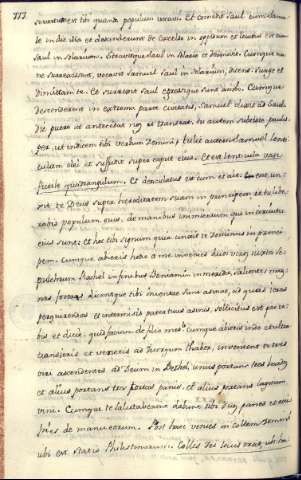 777
servatum est tibi quando populum vocavi. et comedit Saul cum Samue-
le in die illa et descenderunt de excelso in oppidum et locutus est cum
Saul in solarium. stravitque Saul in solario et dormivit. Cumque ma-
ne surrexissent, vocavit Samuel Saul in solarium, dicens. surge et
Dimittam te. et surrexit Saul egressique sunt ambo. Cumque
descenderent in extrema parte civitatis, Samuel dixit ad Saul.
Dic puero ut antecedat nos et transeat. tu autem subsiste paulis-
per, ut indicem tibi verbum Domini. tulit autem Samuel lenti-
culam olei et effudit super caput eius. et erat lenticula vas
fictile quadrangulum. et deosculatus est eum et ait. ecce un-
xit te Deus super hereditatem suam in principem et tu libe-
rabis populum suum, de manibus inimicorum qui in circuitu
eius sunt. et hoc tibi signum quia unxit te Dominus in princi-
pem. Cumque abieris hodie a me invenies duos viros iuxta se-
pulchrum Rachel in finibus Beniamin in meridie, salientes mag-
nas foveas. dicentque tibi inventae sunt asinae, ad quas ieras
perquirendas et intermissis pater tuus asinis, sollicitus est pro vo-
bis et dicit. quid faciam de filio meo? Cumque abieris inde et ultra
transieris et veneris ad quercum Thabor, invenient te tres
viri ascendentes ad Deum in Bethel, unus portans tres haedos
et alius portans tres tortas panis. et alius portans lagenam
vini. Cumque te salutaverint dabunt tibi duos panes et acci-
pies de manu eorum. Post haec venies in collem Domini
ubi est statio Philistinorum.